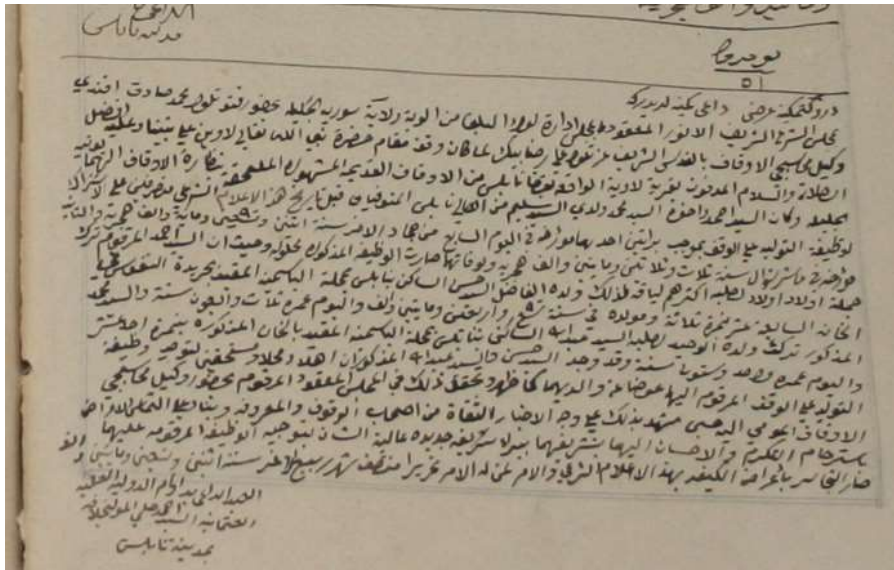 الداعي
مدينة نابلس
دركهمكينه عرض داعي كمينه لريدركه
مجلس الشرع الشريف الانور المعقود بمجلس ادارة لواء البلقا من الوية ولاية سورية الجليلة بحضور فتوتلو محمد صادق افندي
وكيل محاسبجي الاوقاف بالقدس الشريف عزتلو علي رضا بيك لما كان وقف مقام حضرة نبي الله تعالى لاوين على نبينا وعليه افضل
الصلاة والسلام المدفون بقرية لاوية الواقعة بقضا نابلس من الاوقاف القديمة المشهورة الملحقة بنظارة الاوقاف
الجليلة وكان السيد احمد واخوه السيد محمد ولدي السيد سليم من اهالي نابلس المتوفيان قبل تاريخ هذا الاعلام
لوظيفة التولية على الوقف بموجب براتين احدهما مؤرخة في اليوم السابع من جماد الاخر سنة اثنين وتسعين ومايه والف هجرية والثانية
مؤرخة في شوال سنة ثلاث وثلاثين ومايتين والف هجرية وبوفاتهما صارت الوظيفة المذكورة محلولة وحيث ان السيد احمد المرقوم ترك
جملة اولاد اولاد لصلبه اكثرهم لياقة لذلك ولده الفاضل السيد حسن الساكن بنابلس محلة الياسمينة المقيد بجريدة النفوس في
الخانة السابعة عشر نمرة ثلاثة ومولده في سنة تسع واربعين ومايتين والف واليوم عمره ثلاث واربعون سنة والسيد محمد
المذكور ترك ولده الوحيد لصلبه السيد عبد الله الساكن بنابلس بمحلة الياسمينة المقيد بالخانة المذكورة بنمرة احد عشر
واليوم عمره واحد وستون سنة وقد وجد السيد حسن والسيد عبد الله المذكوران اهلا ومحلا ومستحقين لتوجيه وظيفة
التولية على الوقف المرقوم اليهما عوضا عن والديهما كما ظهر وتحقق ذلك في المجلس المعقود المرقوم بحضور وكيل محاسبجي
الاوقاف المومى اليه حسبما شهد بذلك على وجه الاخبار الثقاة من اصحاب الوقوف والمعرفة وبناء على التماس
باسترحام التكرم والاحسان اليهما بتشريفهما ببراءة شريفة جديدة عالية الشان بتوجيه الوظيفة المرقومة عليهما
صار التجاسر باعراض الكيفية بهذا الاعلام الشرعي والامر لمن له الامر تحريرا منتصف شهر ربيع الاخر سنة اثنين وتسعين ومايتين والف
العبد الداعي بدوام الدولة العلية
العثمانية السيد احمد المولى خلافة
بمدينة نابلس